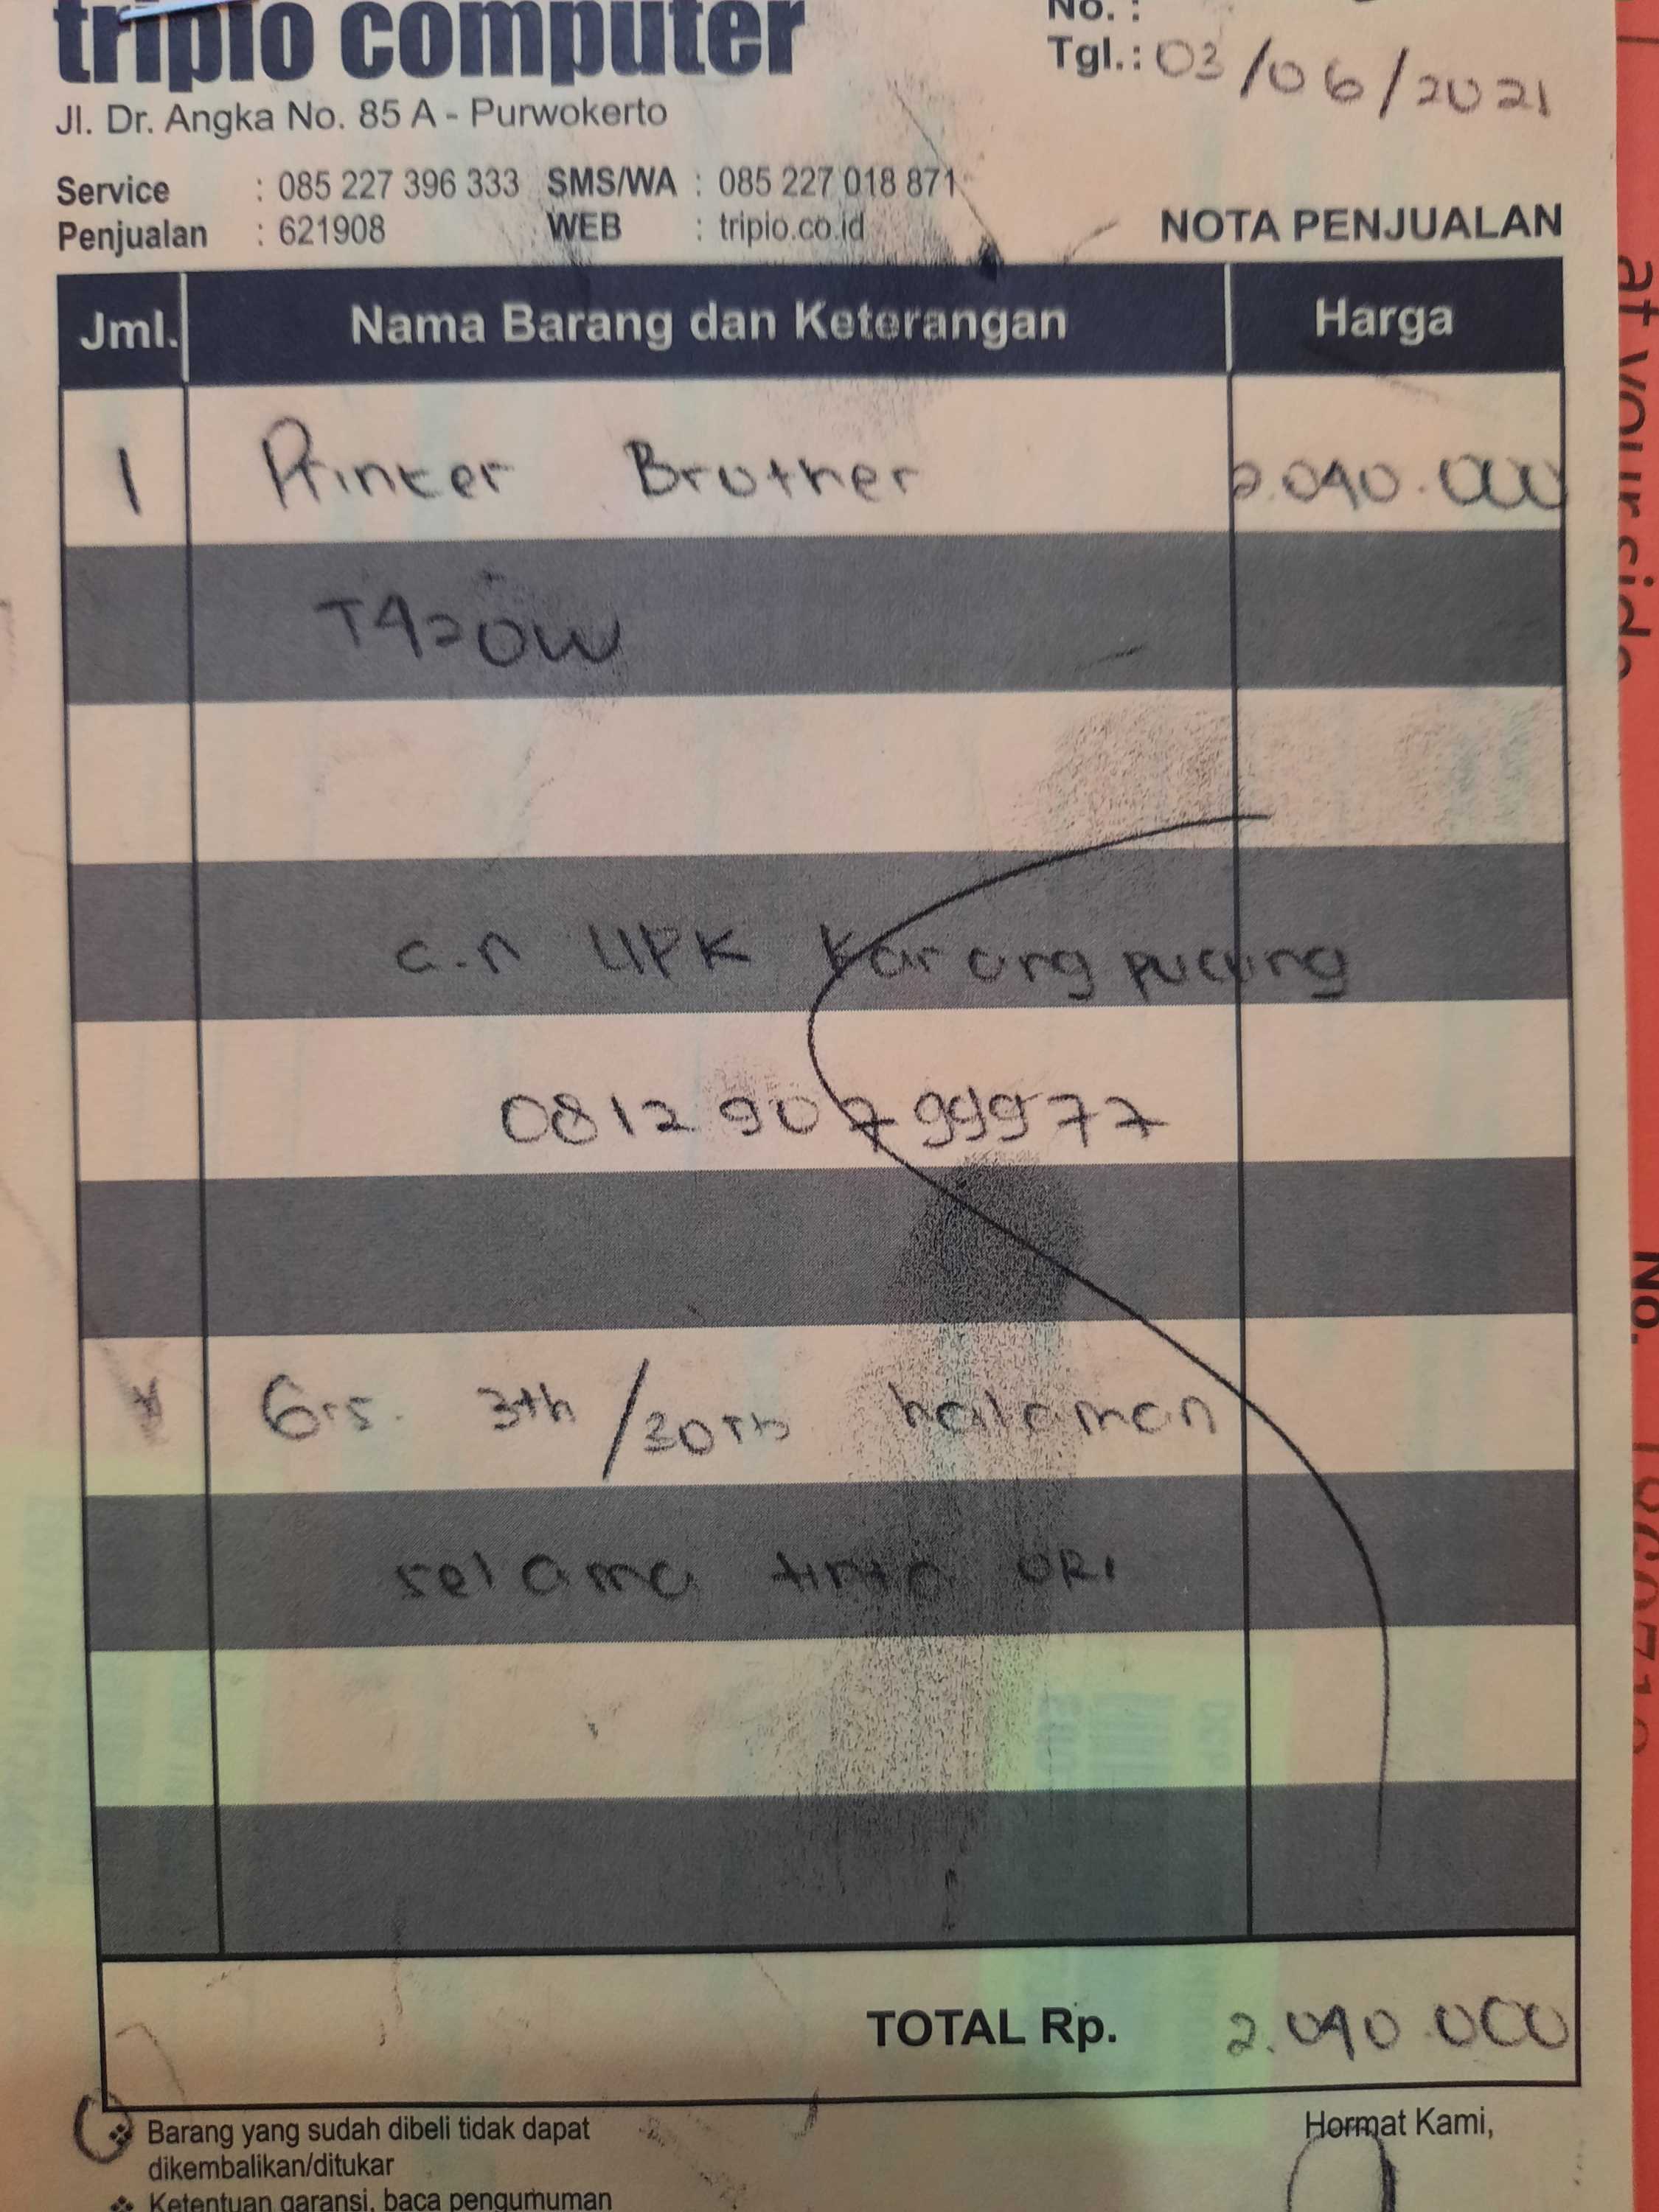 tripio computer
Jl. Dr. Angka No. 85 A - Purwokerto
No. :
Tgl.: 03/06/2021
Service : 085 227 396 333 SMS/WA : 085 227 018 871
Penjualan : 621908 WEB : tripio.co.id
NOTA PENJUALAN
Jml. Nama Barang dan Keterangan Harga
1 Printer Brother 2.090.000
T420W
a.n UPK Karang pucung
0812 90799977
* Grs. 3th/30rb halaman
selama tinta ORI
TOTAL Rp. 2.090.000
Barang yang sudah dibeli tidak dapat
dikembalikan/ditukar
Ketentuan garansi, baca pengumuman
Hormat Kami,
at your side
No.